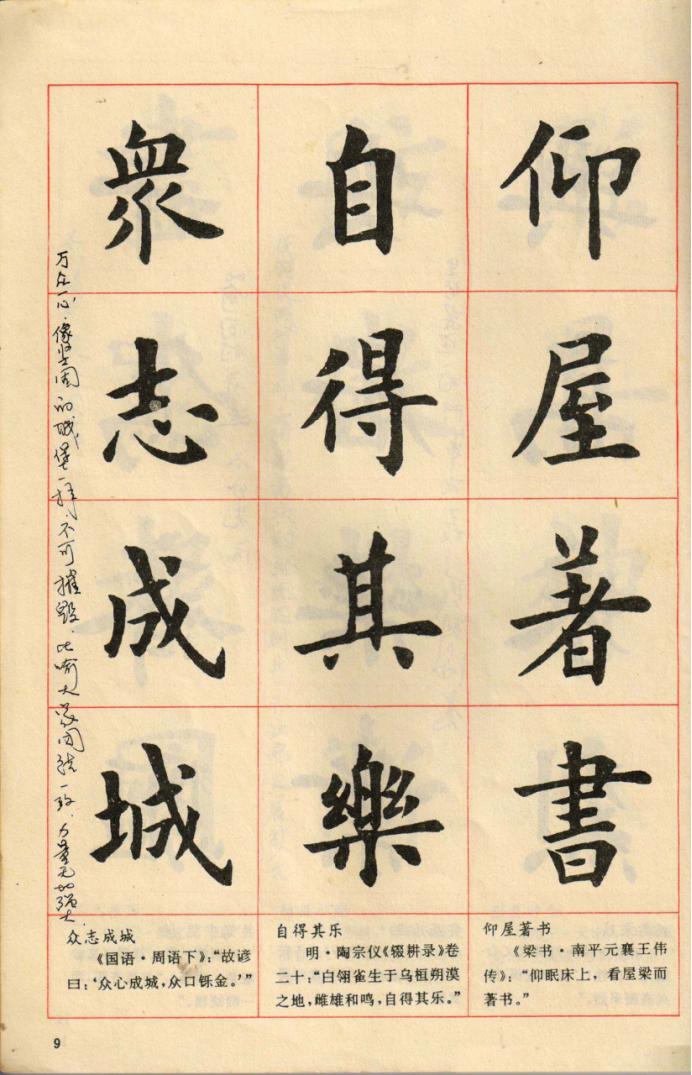 仰屋著書
自得其樂
衆志成城
万众一心,像坚固的城堡一样不可摧毁,比喻大家团结一致,力量无比强大
仰屋著书
《梁书·南平元襄王伟
传》:“仰眠床上,看屋梁而
著书。”
自得其乐
明·陶宗仪《辍耕录》卷
二十:“白翎雀生于乌桓朔漠
之地,雌雄和鸣,自得其乐。”
众志成城
《国语·周语下》:“故谚
曰:‘众心成城,众口铄金。’”
9